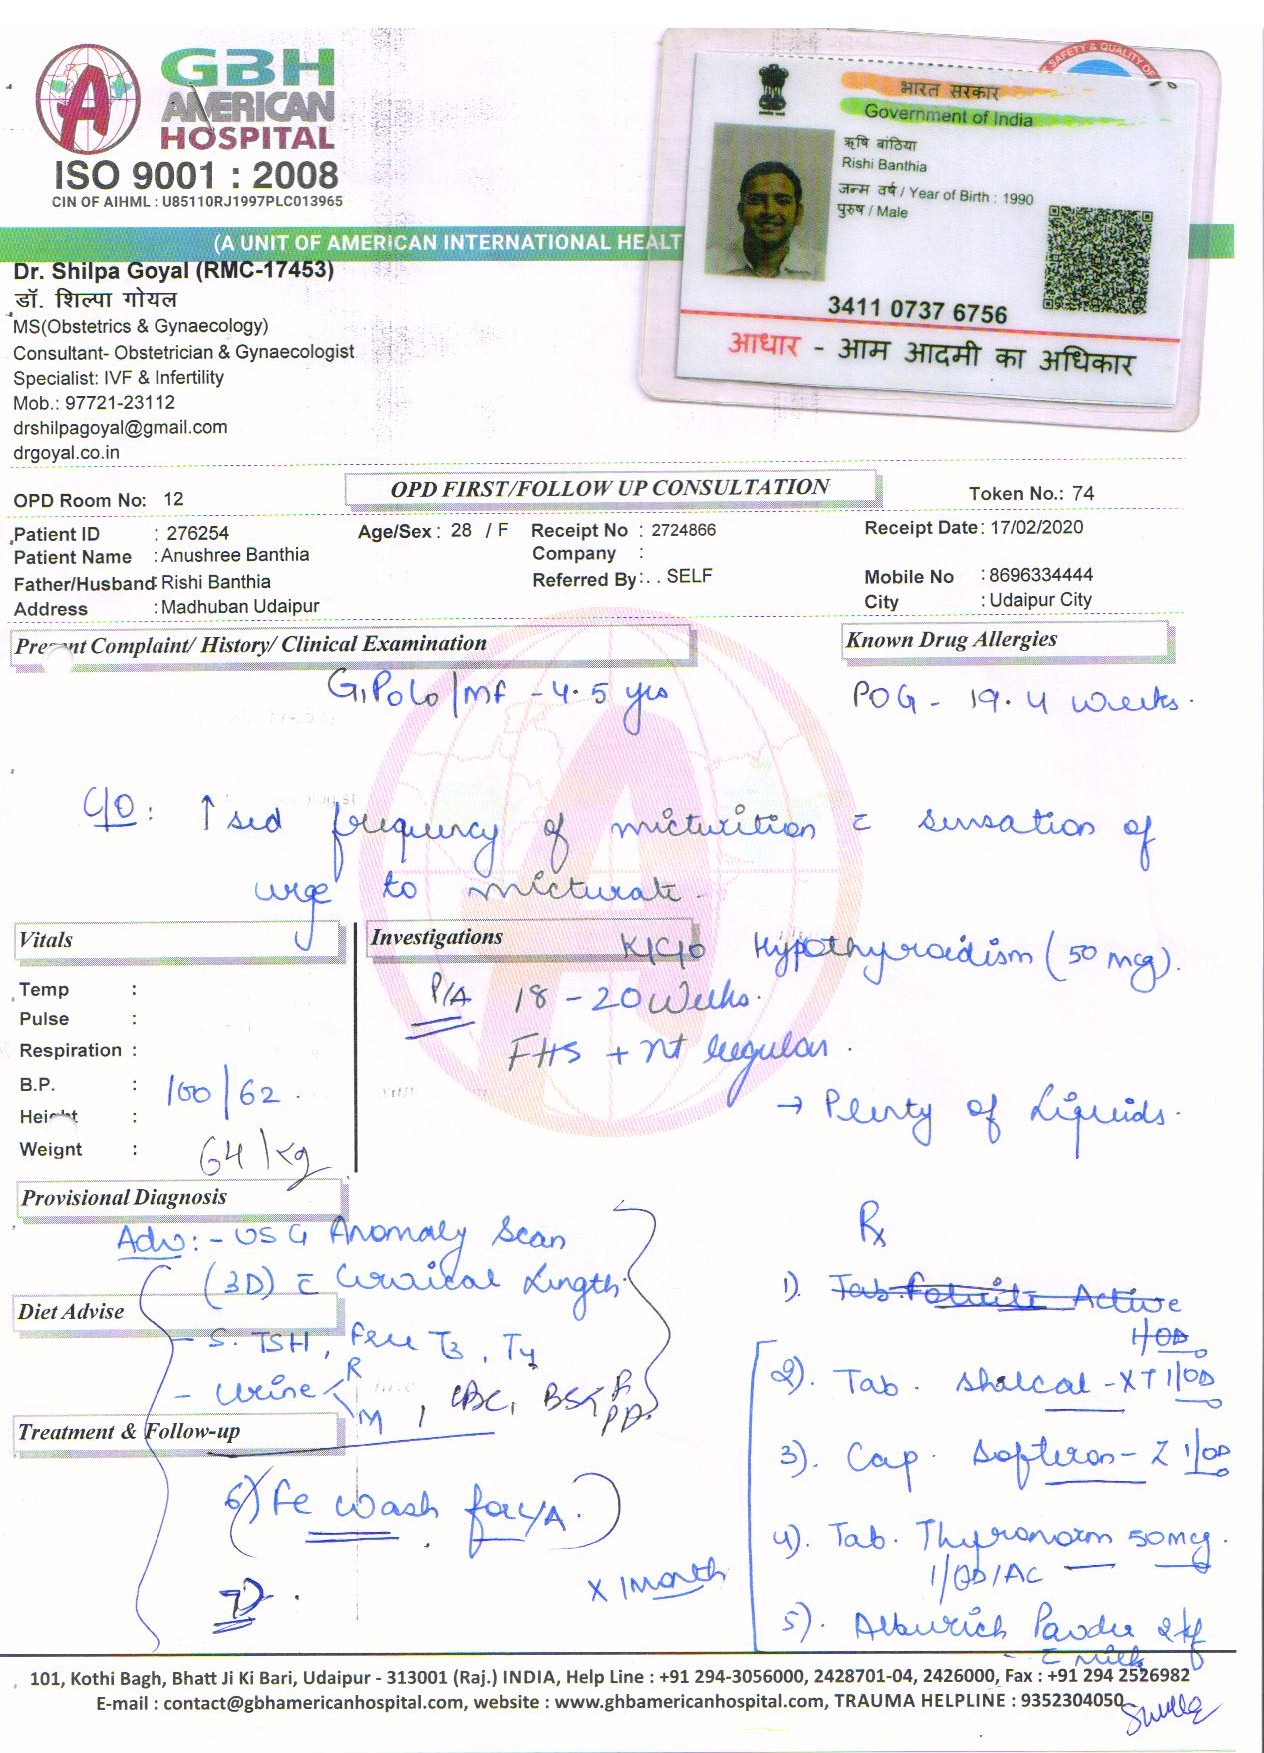 GBH
AMERICAN
HOSPITAL
ISO 9001 : 2008
CIN OF AIHML : U85110RJ1997PLC013965
SAFETY & QUALITY OF
भारत सरकार
Government of India
ऋषि बांठिया
Rishi Banthia
जन्म वर्ष / Year of Birth : 1990
पुरुष / Male
3411 0737 6756
आधार - आम आदमी का अधिकार
(A UNIT OF AMERICAN INTERNATIONAL HEALT
Dr. Shilpa Goyal (RMC-17453)
डॉ. शिल्पा गोयल
MS(Obstetrics & Gynaecology)
Consultant- Obstetrician & Gynaecologist
Specialist: IVF & Infertility
Mob.: 97721-23112
drshilpagoyal@gmail.com
drgoyal.co.in
OPD Room No: 12 OPD FIRST/FOLLOW UP CONSULTATION Token No.: 74
Patient ID : 276254 Age/Sex : 28 / F Receipt No : 2724866 Receipt Date : 17/02/2020
Patient Name : Anushree Banthia Company :
Father/Husband : Rishi Banthia Referred By : . . SELF Mobile No : 8696334444
Address : Madhuban Udaipur City : Udaipur City
Present Complaint/ History/ Clinical Examination Known Drug Allergies
G1P0L0/MF - 4.5 yrs POG - 19.4 weeks.
C/O : ↑sed frequency of micturition c̄ sensation of
urge to micturate.
Vitals Investigations K/C/O Hypothyroidism (50 mcg).
Temp : P/A 18 - 20 Weeks.
Pulse :
Respiration : FHS + nt regular.
B.P. : 100/62.
Height : → Plenty of Liquids.
Weight : 64/kg
Provisional Diagnosis
Adv :- USG Anomaly Scan Rx
(3D) c̄ Cervical Length
1). Tab. Folvite Active
1/OD
Diet Advise
- S. TSH, Free T3, T4
2). Tab. Shelcal-XT 1/OD
- Urine R M, CBC, BSL F PP.
Treatment & Follow-up
3). Cap. Softeron-Z 1/OD
6) Fe wash for L/A.
4). Tab. Thyronorm 50mcg.
1/OD/AC
x 1month
5). Powder
c̄ milk
101, Kothi Bagh, Bhatt Ji Ki Bari, Udaipur - 313001 (Raj.) INDIA, Help Line : +91 294-3056000, 2428701-04, 2426000, Fax : +91 294 2526982
E-mail : contact@gbhamericanhospital.com, website : www.ghbamericanhospital.com, TRAUMA HELPLINE : 9352304050